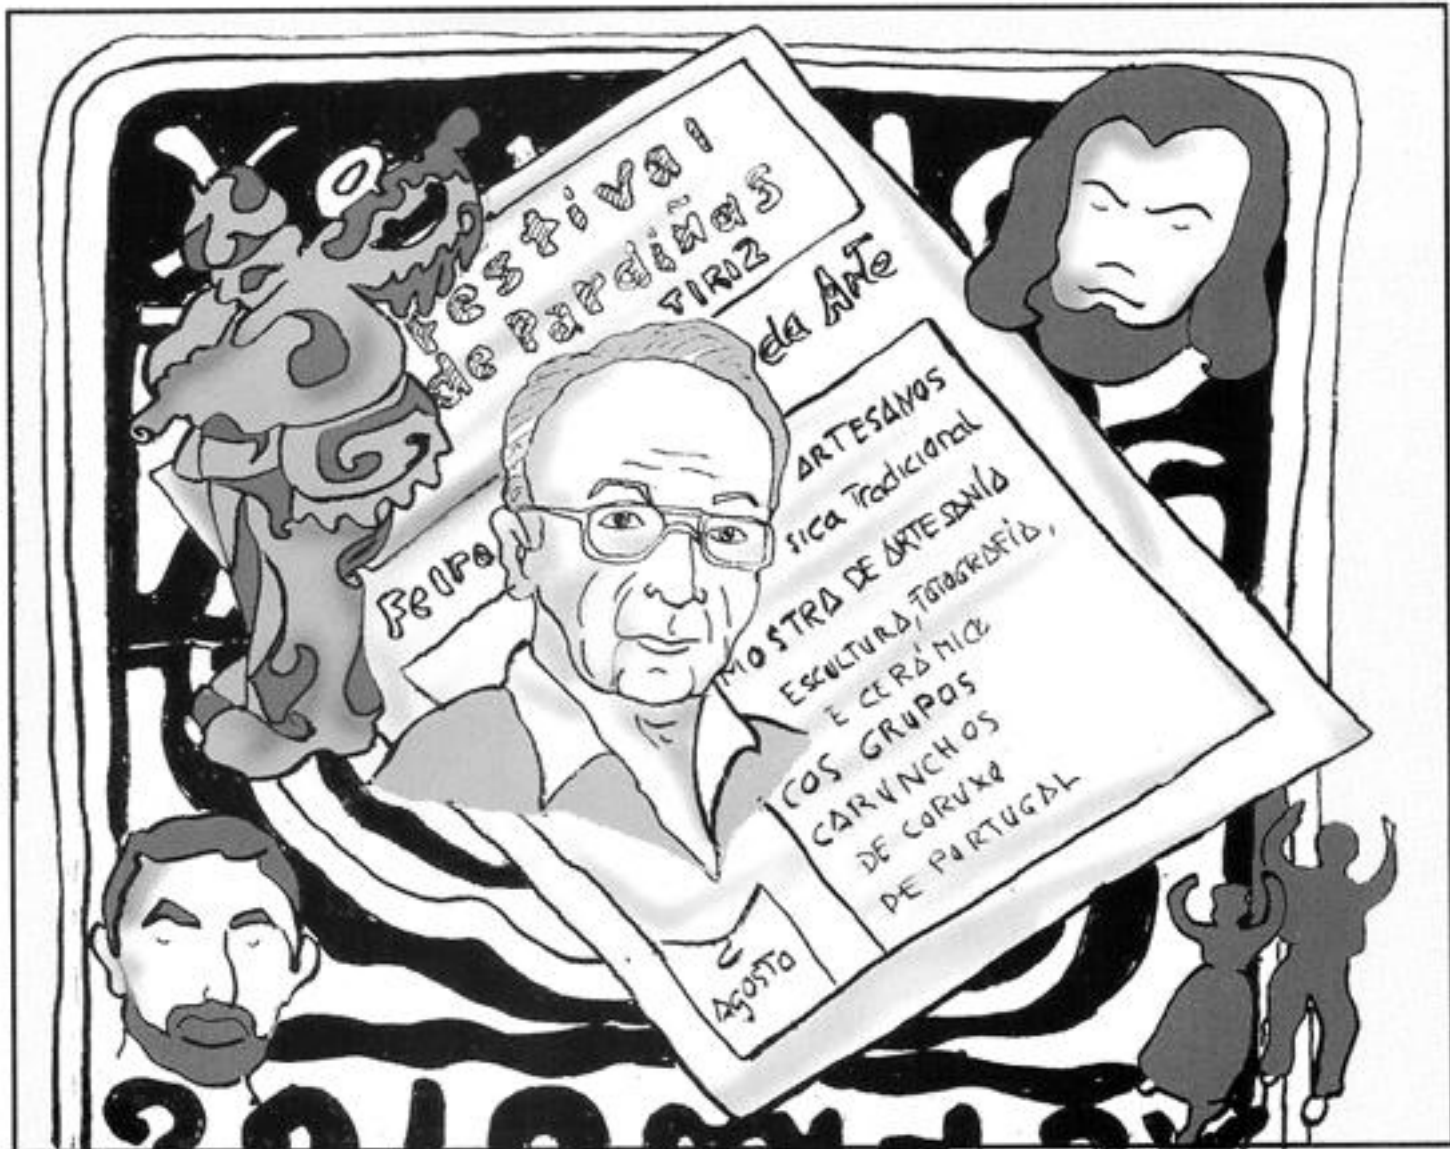 Festival
de Pardiñas
TIRIZ
Feira
da Arte
ARTESANOS
sica Tradicional
MOSTRA DE ARTESANÍA
ESCULTURA, FOTOGRAFÍA,
E CERÁMICA
COS GRUPOS
CARUNCHOS
DE CORUXO
DE PORTUGAL
2
AGOSTO